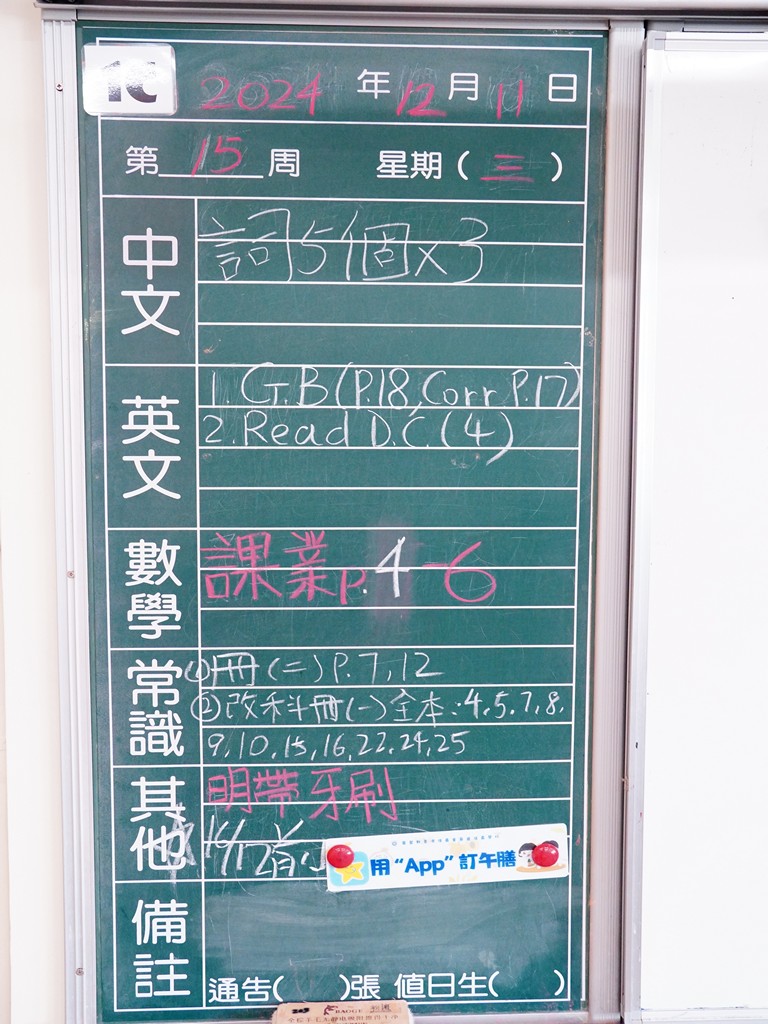 1C
2024 年 12 月 11 日
第 15 周 星期 ( 三 )
中文
詞5個x3
英文
1. G.B (P.18, Corr P.17)
2. Read D.C. (4)
數學
課業 p.4-6
常識
①冊(二) P.7,12
②改科冊(一)全本:4.5.7.8.
9,10,15,16,22,24,25
其他
明帶牙刷
16/12前
用 “App” 訂午膳
備註
通告( )張 值日生( )